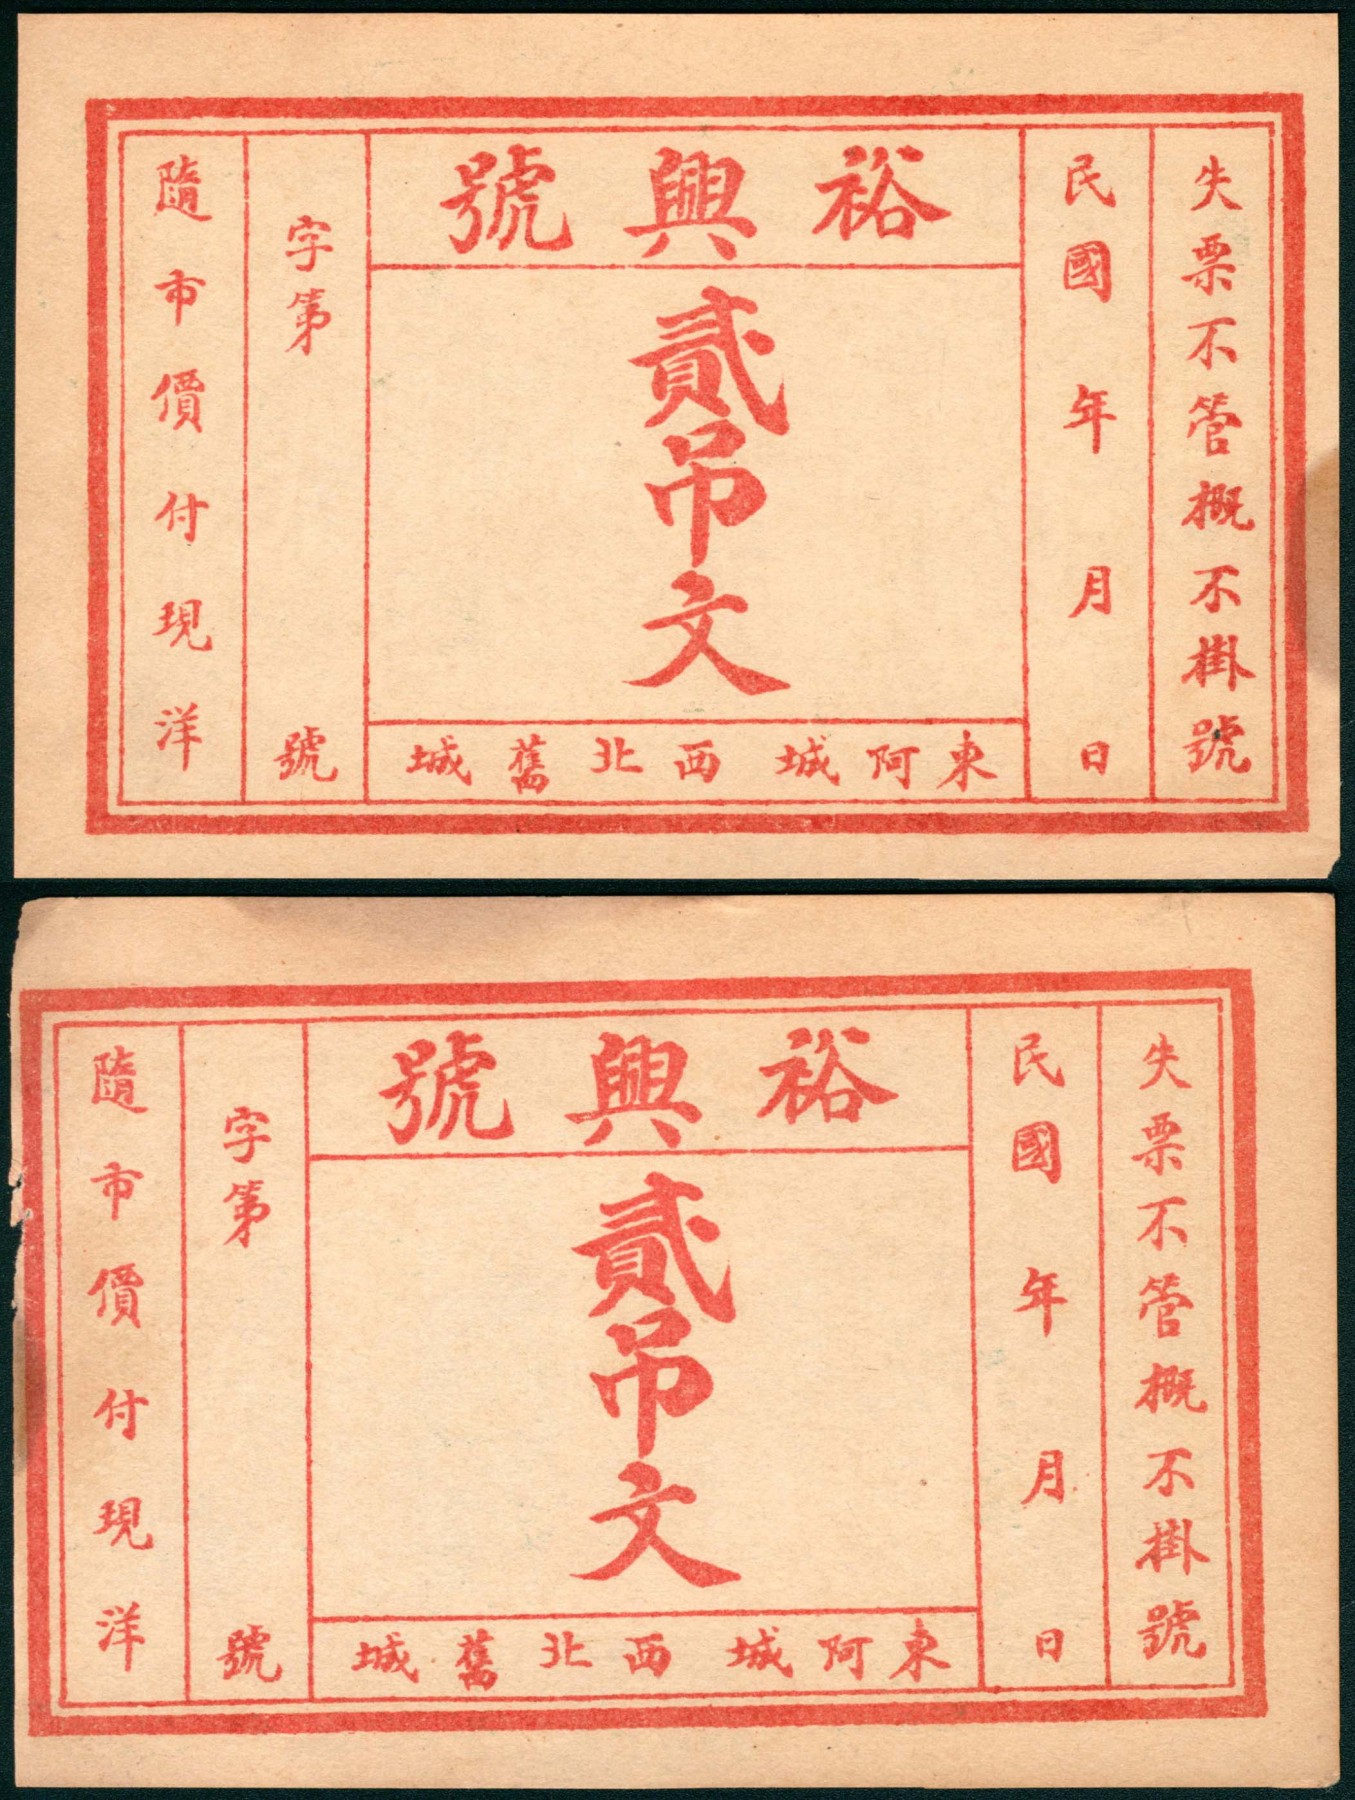 裕興號
失票不管概不掛號
民國年月日
貳吊文
字第號
隨市價付現洋
東阿城西北舊城
裕興號
失票不管概不掛號
民國年月日
貳吊文
字第號
隨市價付現洋
東阿城西北舊城